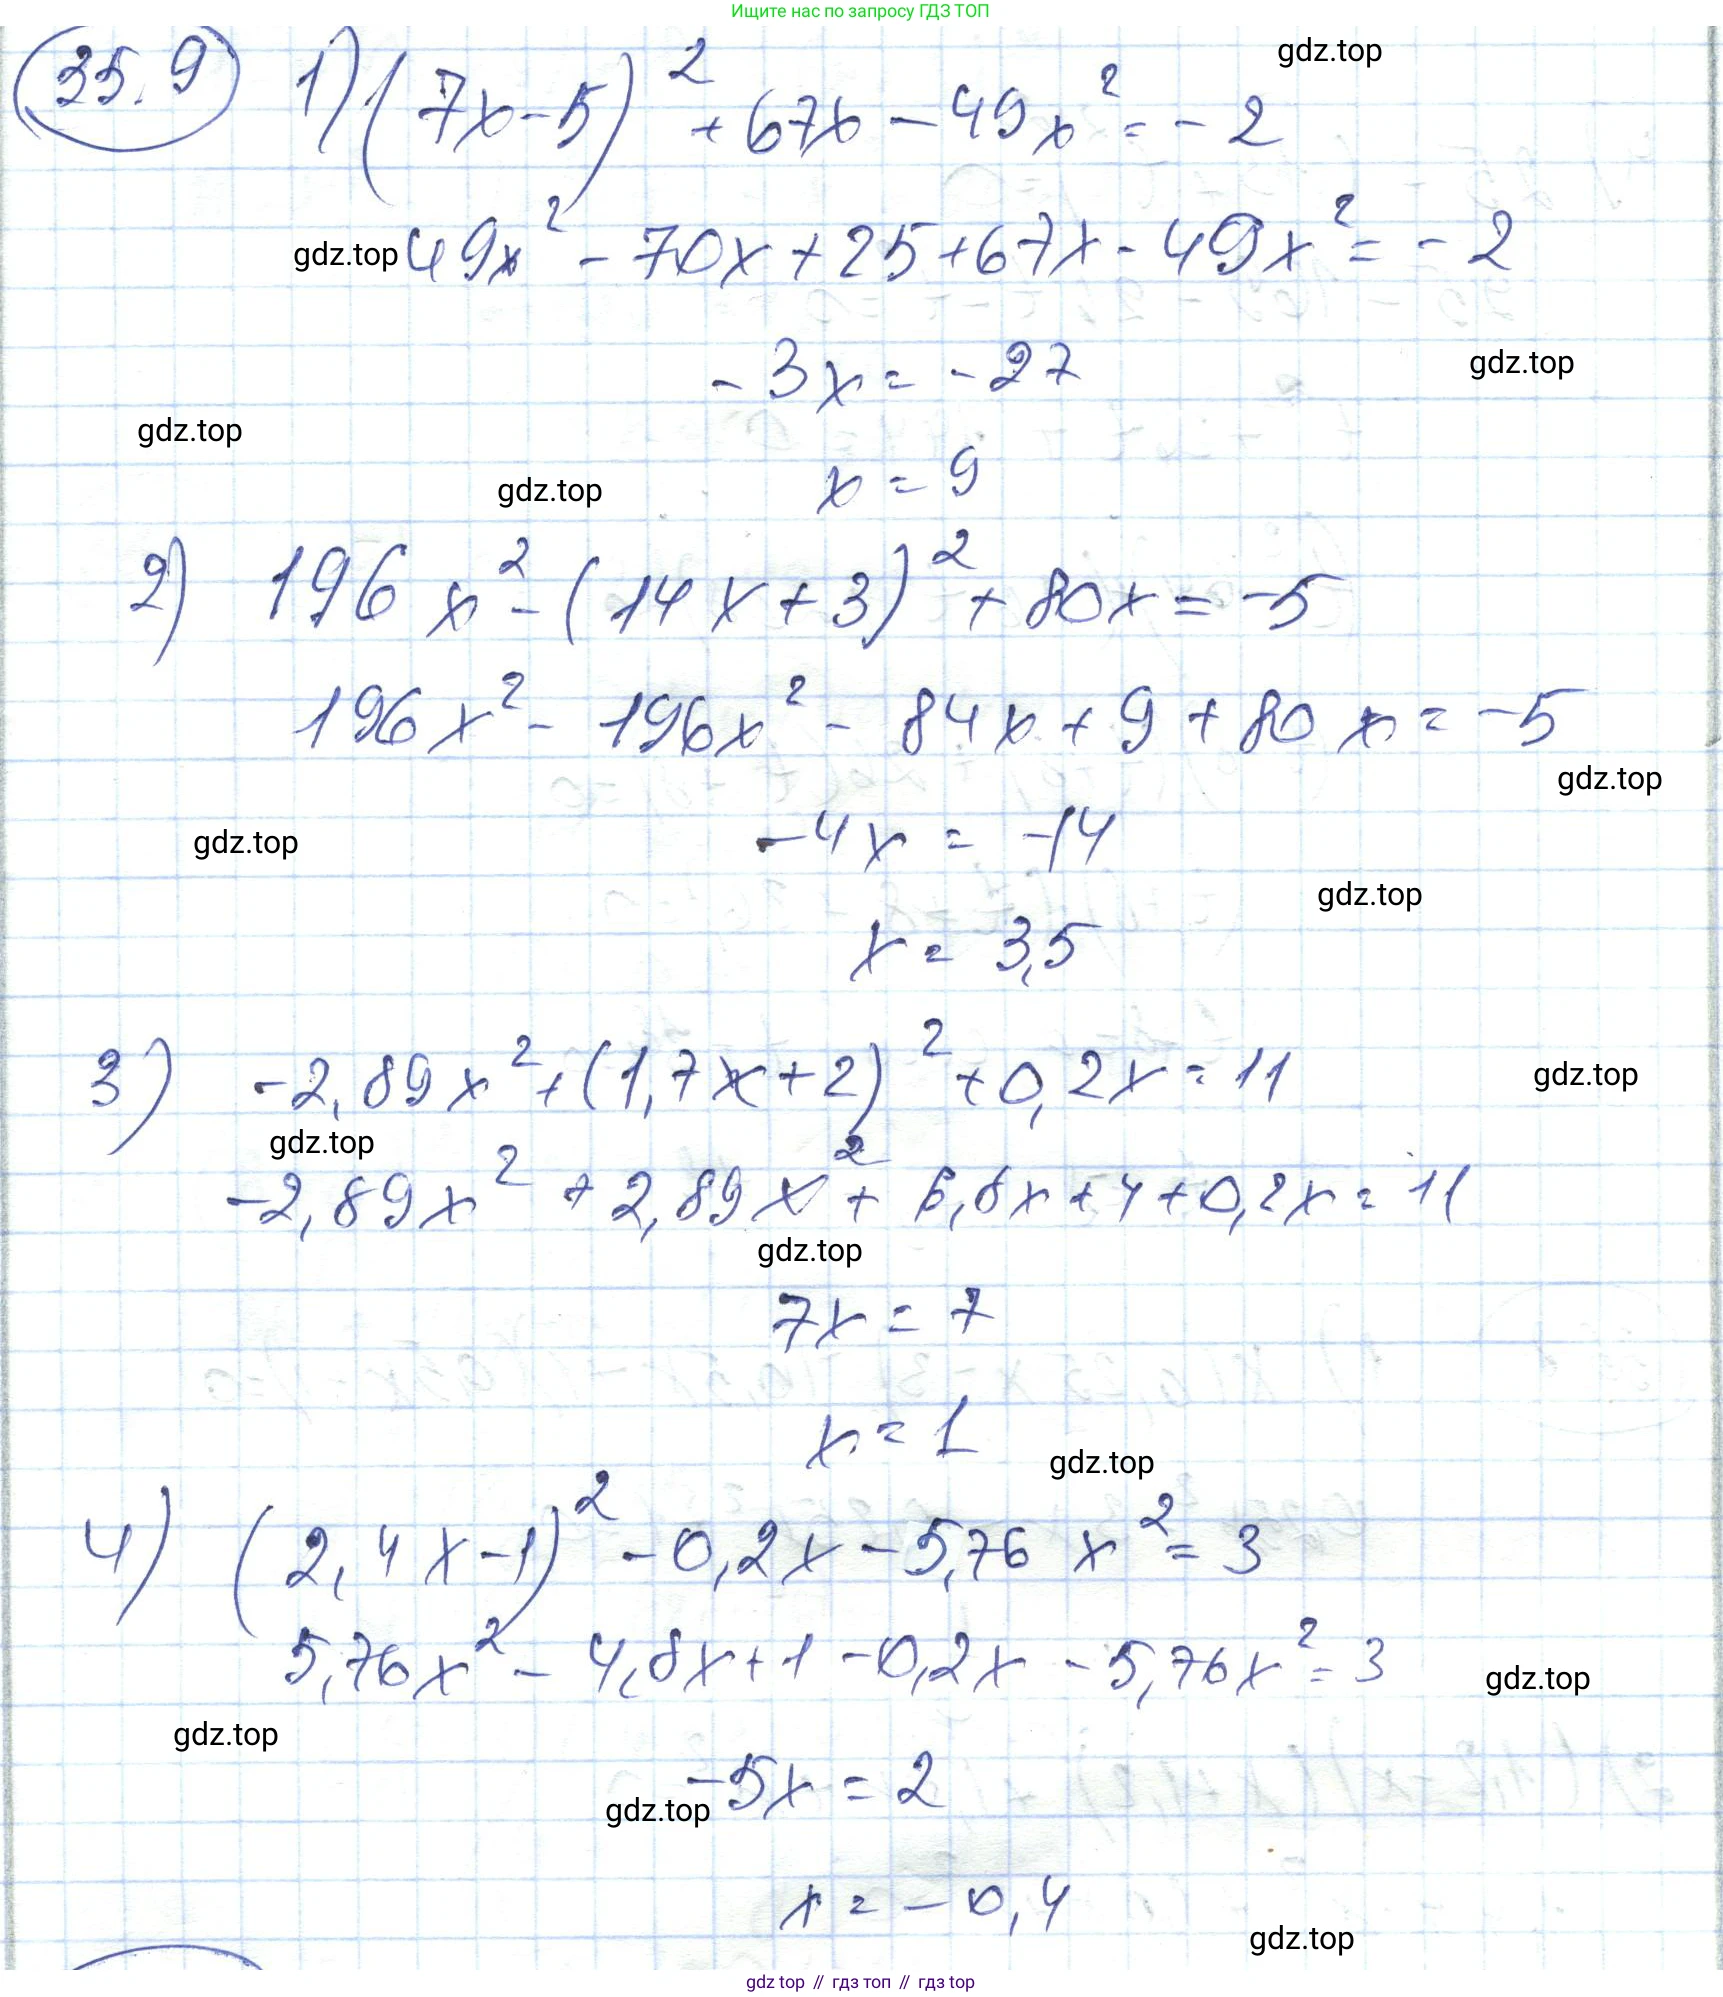 Ищите нас по запросу ГДЗ ТОП
35.9 1) (7x-5)² + 67x - 49x² = -2
gdz.top
gdz.top 49x² - 70x + 25 + 67x - 49x² = -2
-3x = -27
gdz.top
gdz.top
x = 9
gdz.top
2) 196x² - (14x+3)² + 80x = -5
196x² - 196x² - 84x + 9 + 80x = -5
gdz.top
-4x = -14
gdz.top
gdz.top
x = 3,5
3) -2,89x² + (1,7x+2)² + 0,2x = 11
gdz.top
gdz.top
-2,89x² + 2,89x² + 6,8x + 4 + 0,2x = 11
gdz.top
7x = 7
x = 1
gdz.top
4) (2,4x-1)² - 0,2x - 5,76x² = 3
5,76x² - 4,8x + 1 - 0,2x - 5,76x² = 3
gdz.top
gdz.top
-5x = 2
gdz.top
x = -0,4
gdz.top
gdz top // гдз топ // гдз top